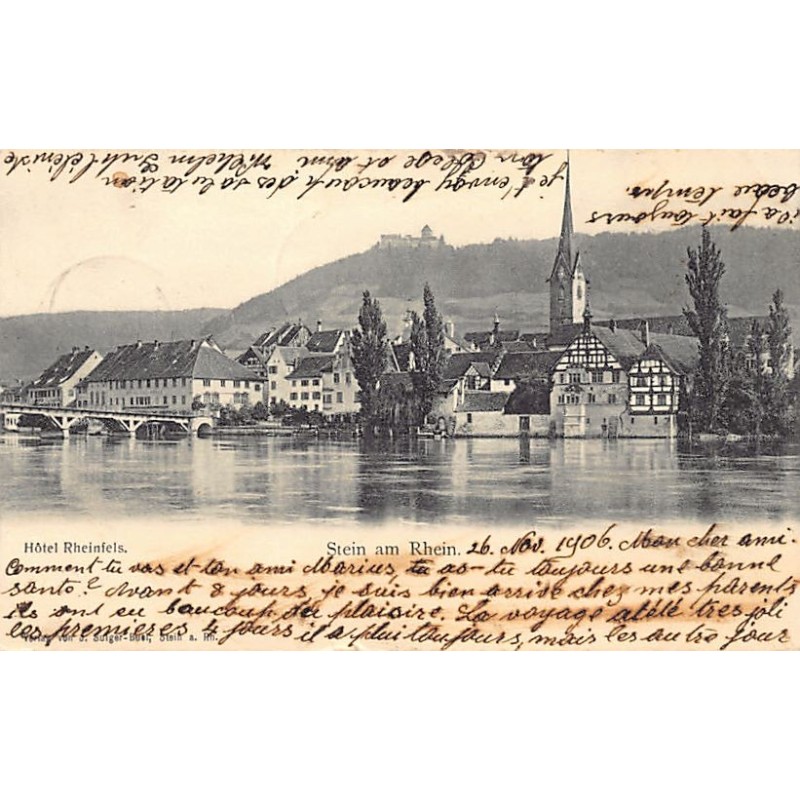 Hôtel Rheinfels.
Stein am Rhein. 26. Nov. 1906. Mon cher ami.
Comment tu vas et ton ami Marius, tu as-tu toujours une bonne
santé? Avant 8 jours je suis bien arrivé chez mes parents
ils ont eu beaucoup du plaisire. La voyage a été tres joli
les premieres 4 jours il a plui toujours, mais les autre jour
Verlag von J. Sulger-Buel, Stein a. Rh.
il a fait toujours
beau temps.
je t'envoy beaucoup des salutation
ton Colege et ami Wilhelm